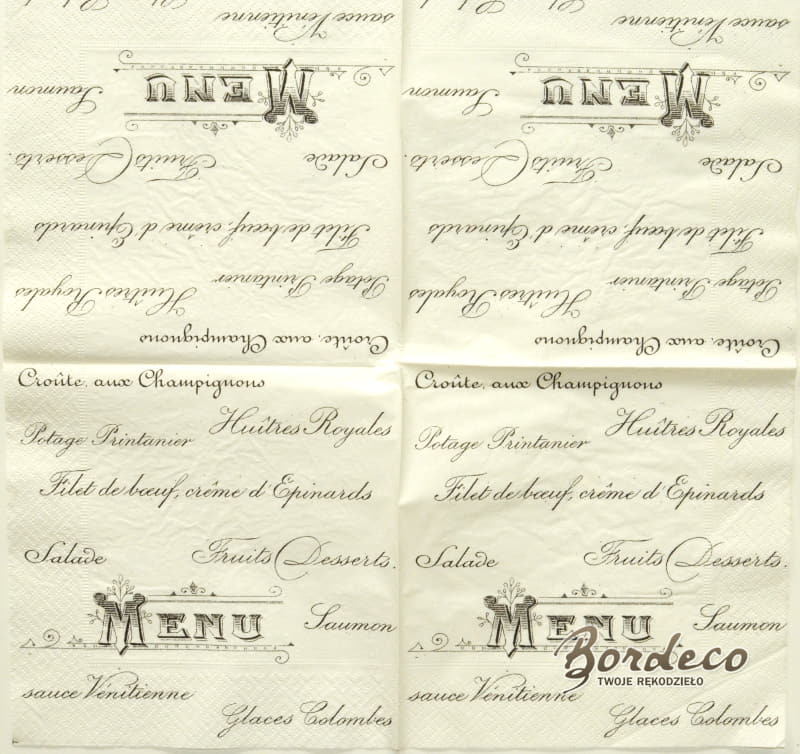 sauce Vénitienne
sauce Vénitienne
MENU
MENU
Saumon
Saumon
Salade Fruits Desserts.
Salade Fruits Desserts.
Filet de bœuf, crême d'Epinards
Filet de bœuf, crême d'Epinards
Potage Printanier Huîtres Royales
Potage Printanier Huîtres Royales
Croûte, aux Champignons
Croûte, aux Champignons
Croûte, aux Champignons
Huîtres Royales
Potage Printanier
Filet de bœuf, crême d'Epinards
Salade Fruits Desserts.
MENU
Saumon
sauce Vénitienne
Glaces Colombes
Croûte, aux Champignons
Huîtres Royales
Potage Printanier
Filet de bœuf, crême d'Epinards
Salade Fruits Desserts.
MENU
Saumon
sauce Vénitienne
Glaces Colombes
Bordeco
TWOJE RĘKODZIEŁO